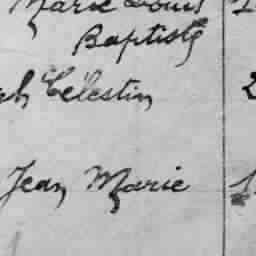 Marie Louis
Baptiste
ph Célestin 2
Jean Marie